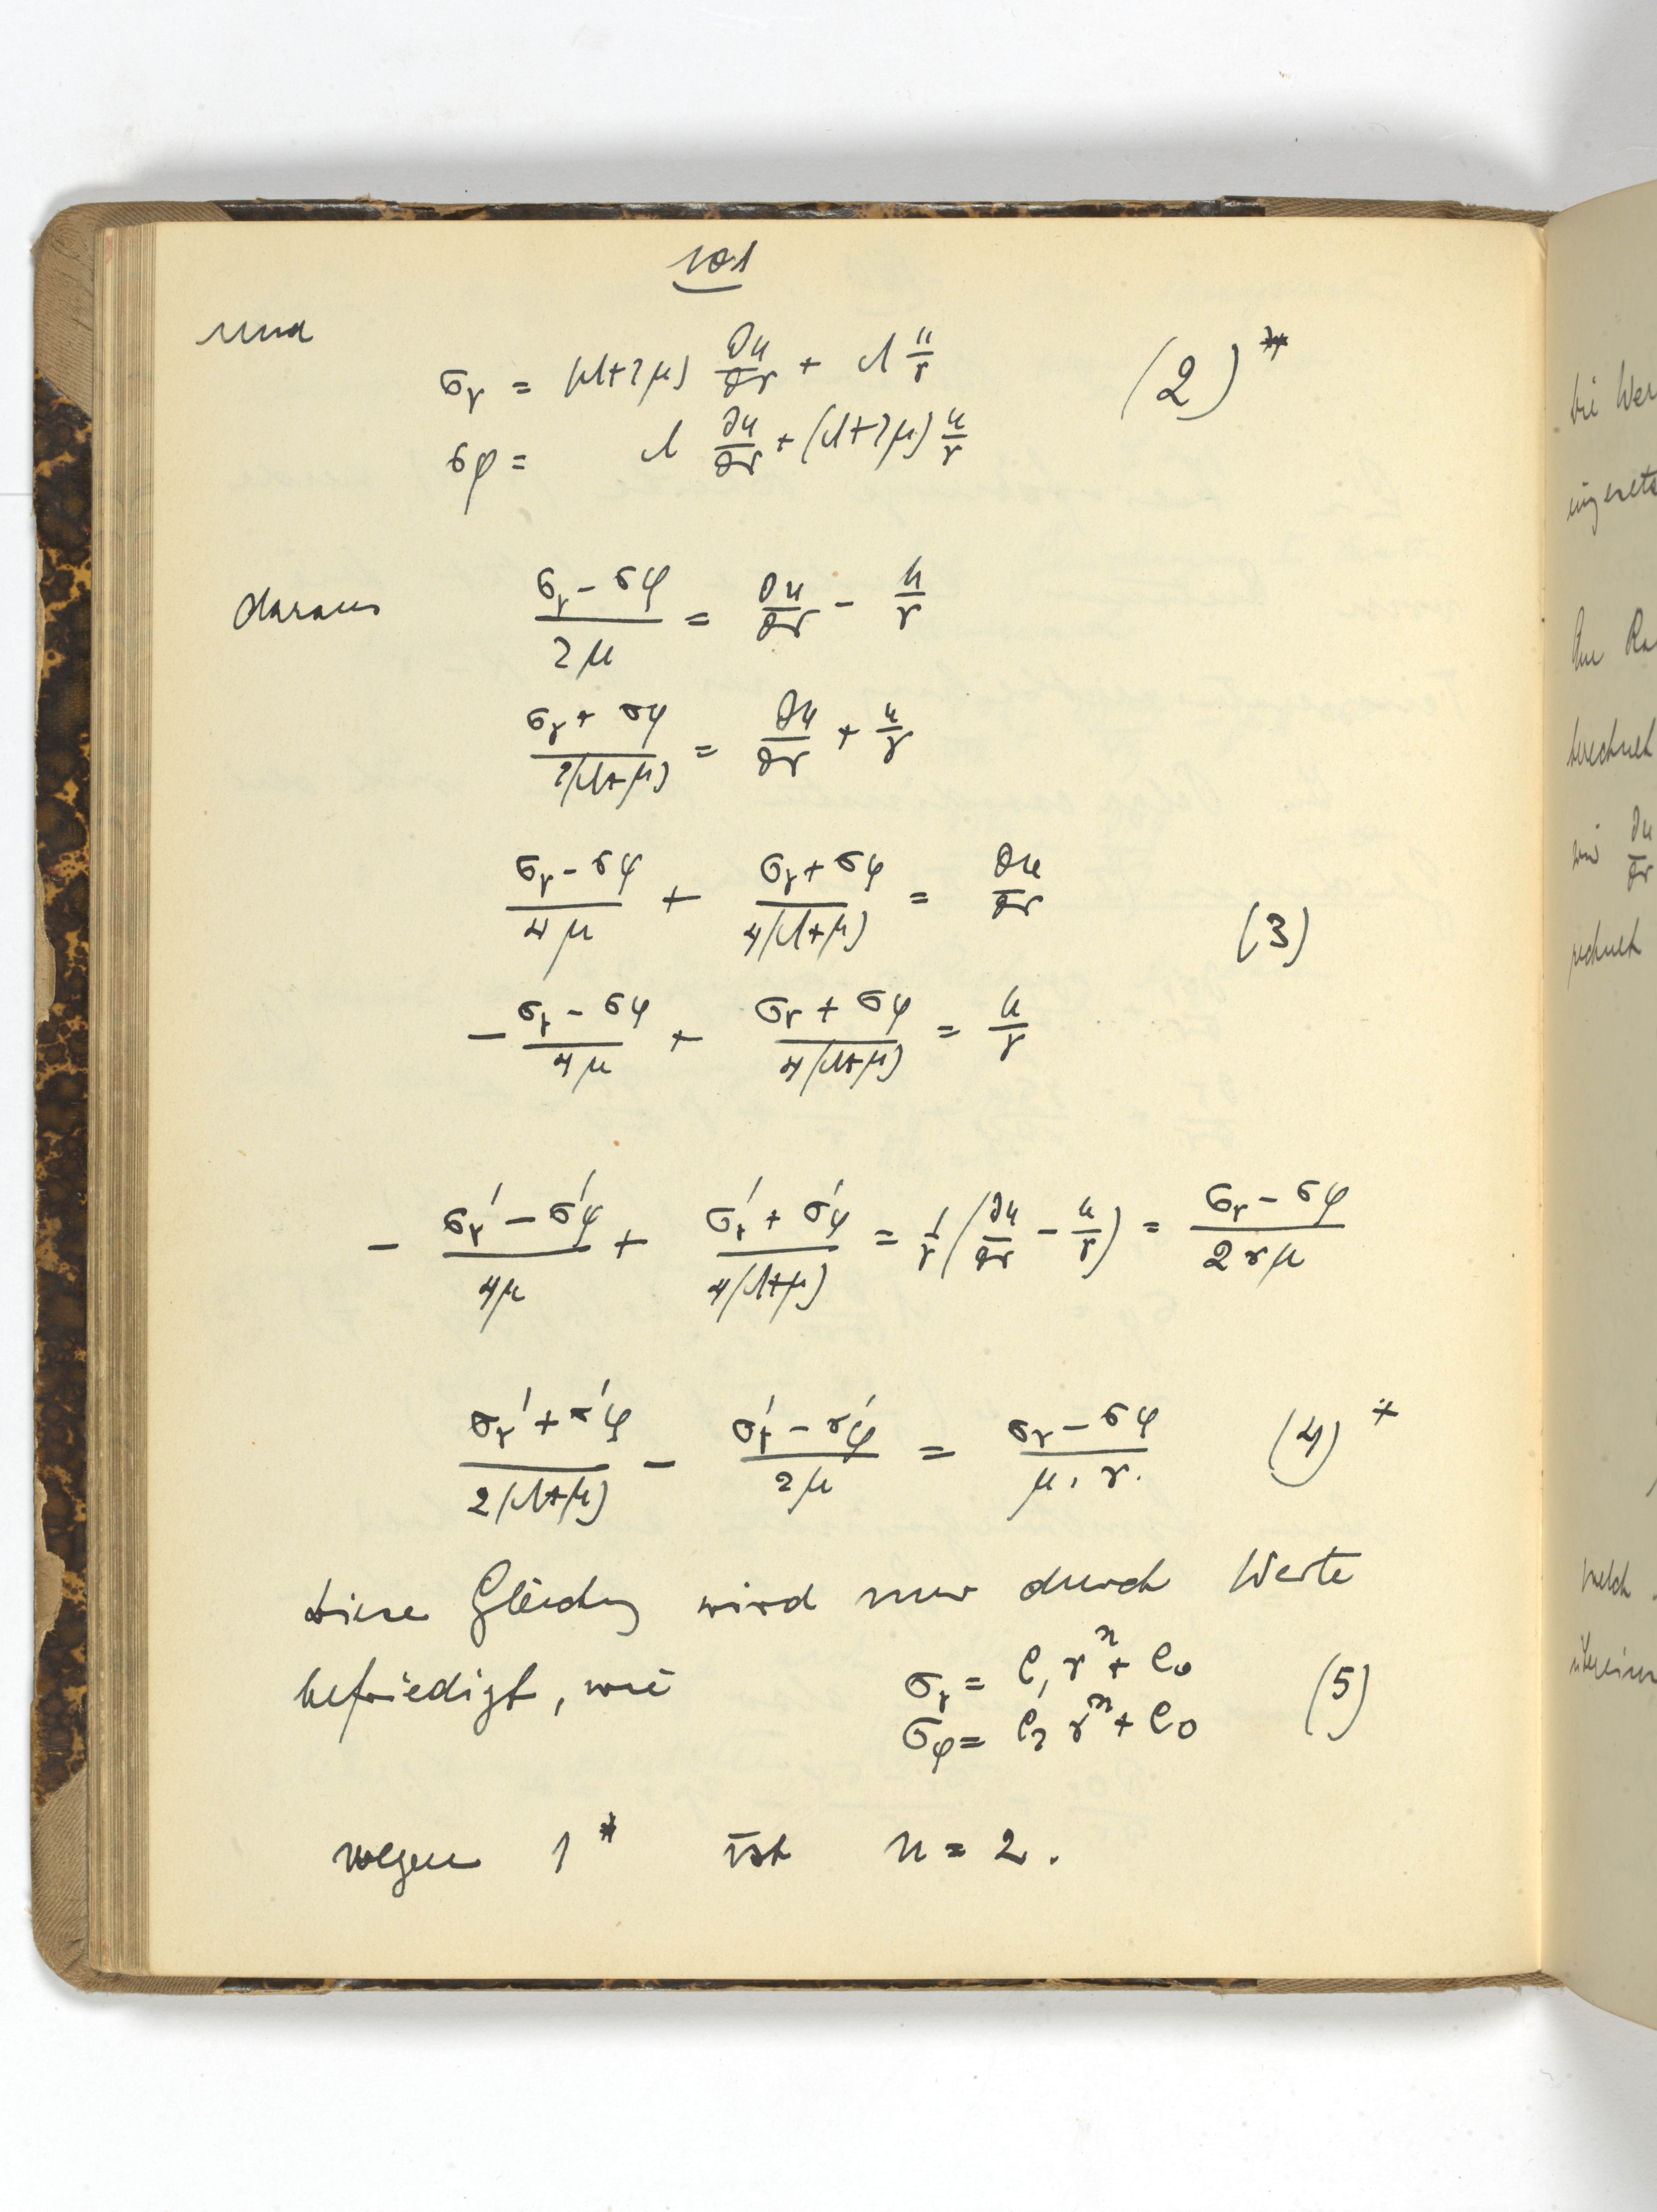 101
und
σr = (λ+2μ) ∂u/∂r + λ u/r (2)**
σφ = λ ∂u/∂r + (λ+2μ) u/r
daraus (σr − σφ)/2μ = ∂u/∂r − u/r
(σr + σφ)/2(λ+μ) = ∂u/∂r + u/r
(σr − σφ)/4μ + (σr + σφ)/4(λ+μ) = ∂u/∂r (3)
− (σr − σφ)/4μ + (σr + σφ)/4(λ+μ) = u/r
− (σr′ − σ′φ)/4μ + (σr′ + σ′φ)/4(λ+μ) = 1/r (∂u/∂r − u/r) = (σr − σφ)/2rμ
(σr′ + σ′φ)/2(λ+μ) − (σ′r − σ′φ)/2μ = (σr − σφ)/μ. r. (4)*
diese Gleichung wird nur durch Werte
befriedigt, wie σr = C₁ rⁿ + C₀ (5)
σφ = C₂ rⁿ + C₀
wegen 1* ist n = 2.
die
∂u/∂r